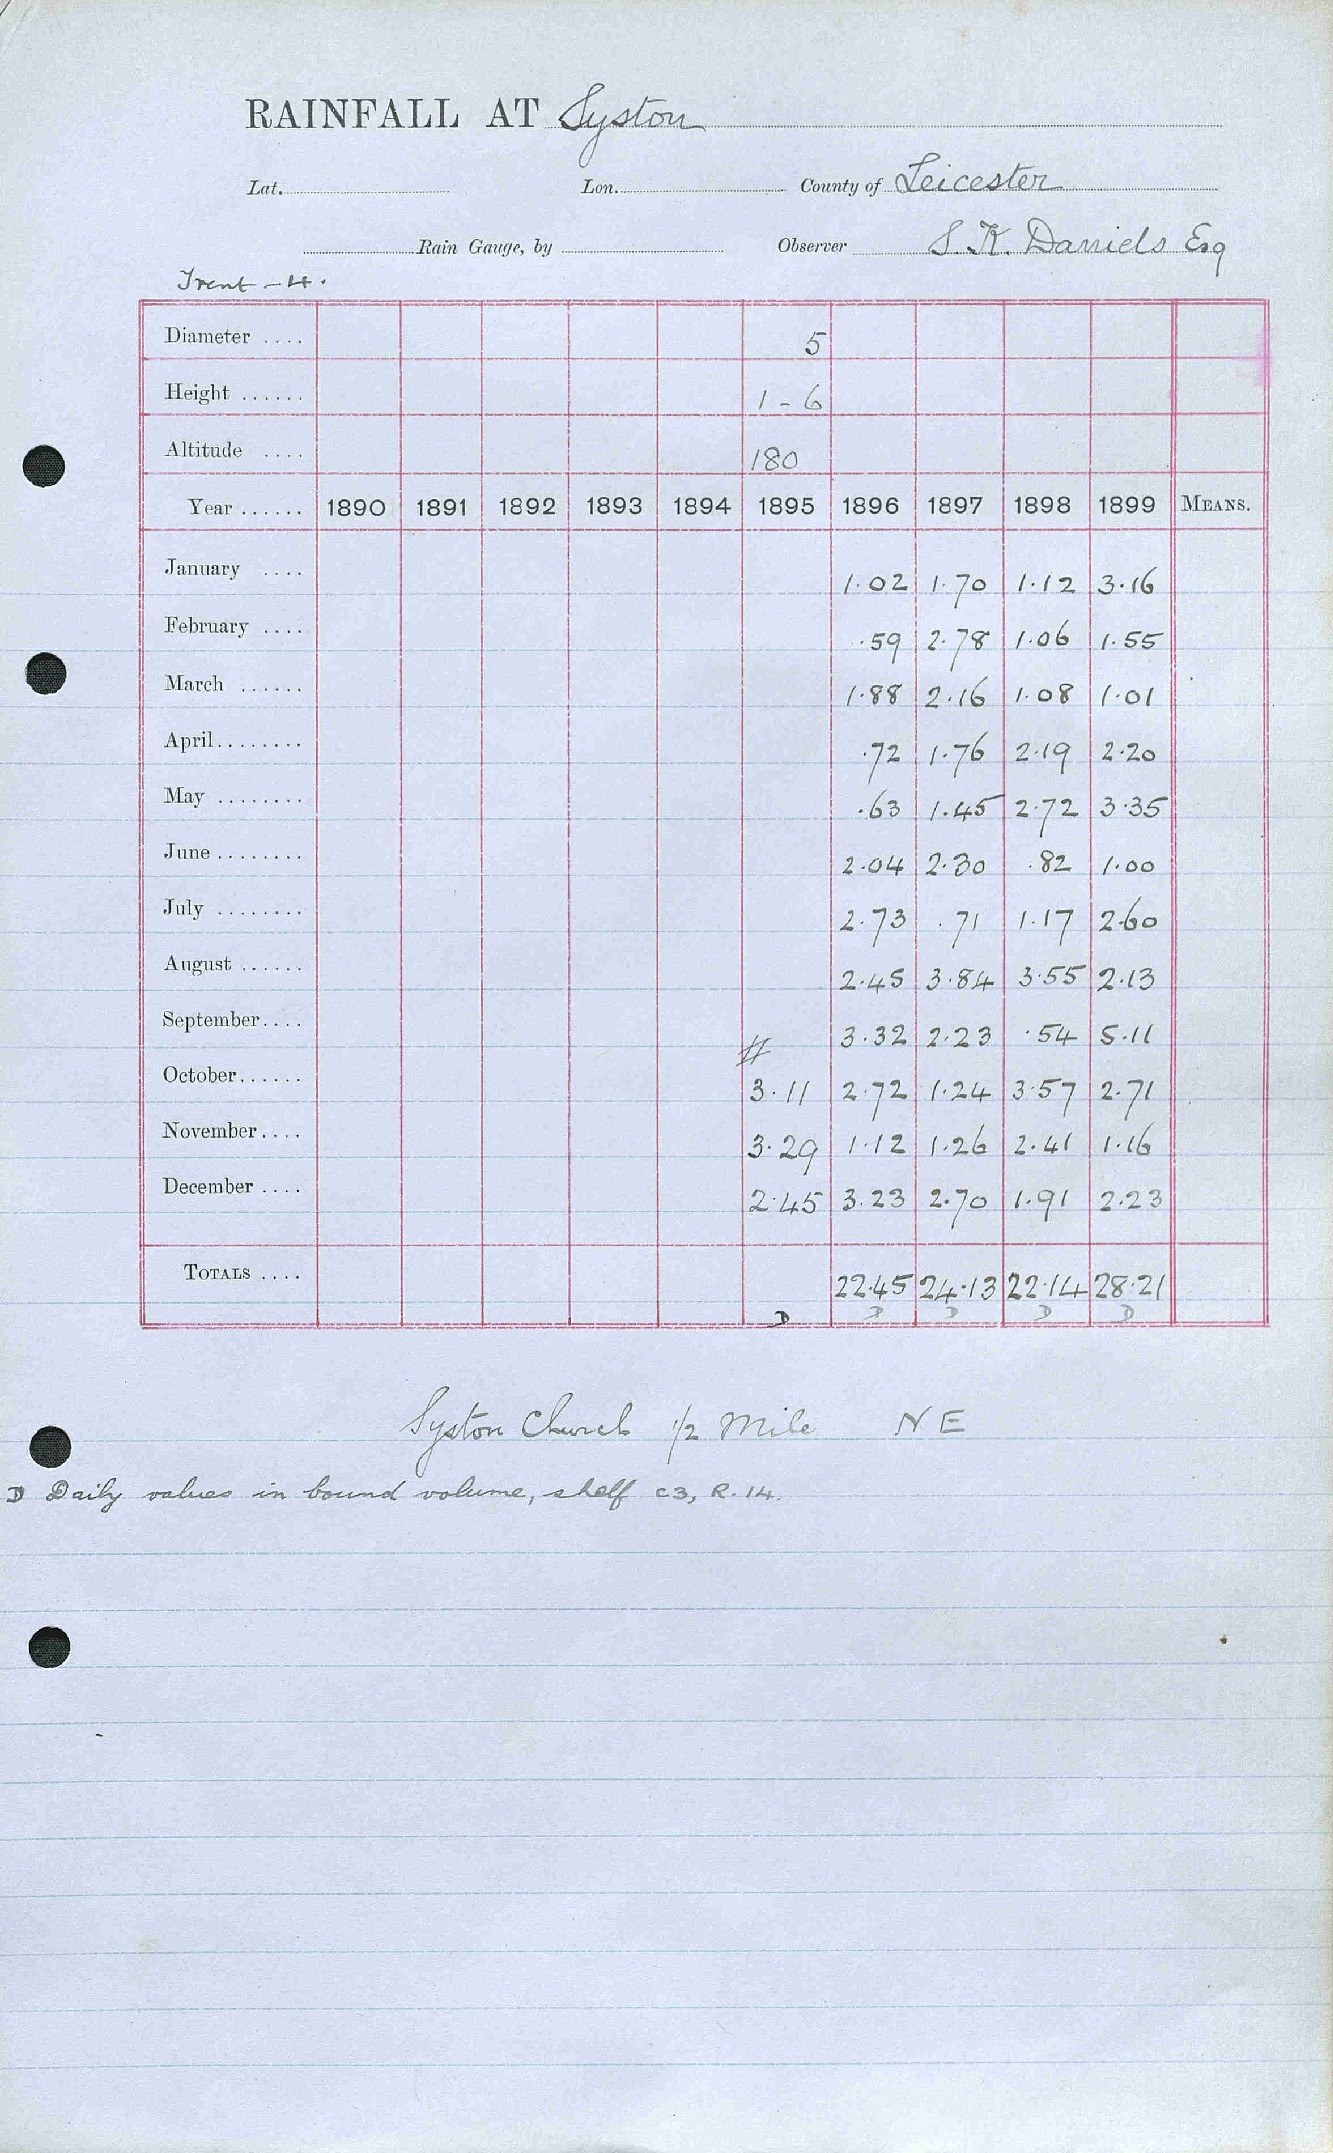 RAINFALL AT Syston
Lat. Lon. County of Leicester
Rain Gauge, by Observer S. K. Daniels Esq
Trent - 4.
Diameter .... 5
Height ...... 1 - 6
Altitude .... 180
Year ...... 1890 1891 1892 1893 1894 1895 1896 1897 1898 1899 MEANS.
January .... 1.02 1.70 1.12 3.16
February .... .59 2.78 1.06 1.55
March ...... 1.88 2.16 1.08 1.01
April........ .72 1.76 2.19 2.20
May ........ .63 1.45 2.72 3.35
June ........ 2.04 2.30 .82 1.00
July ........ 2.73 .71 1.17 2.60
August ...... 2.45 3.84 3.55 2.13
September.... 3.32 2.23 .54 5.11
October...... 3.11 2.72 1.24 3.57 2.71
November.... 3.29 1.12 1.26 2.41 1.16
December .... 2.45 3.23 2.70 1.91 2.23
TOTALS .... 22.45 24.13 22.14 28.21
D D D D D
Syston Church 1/2 Mile N E
D Daily values in bound volume, shelf C3, R. 14.